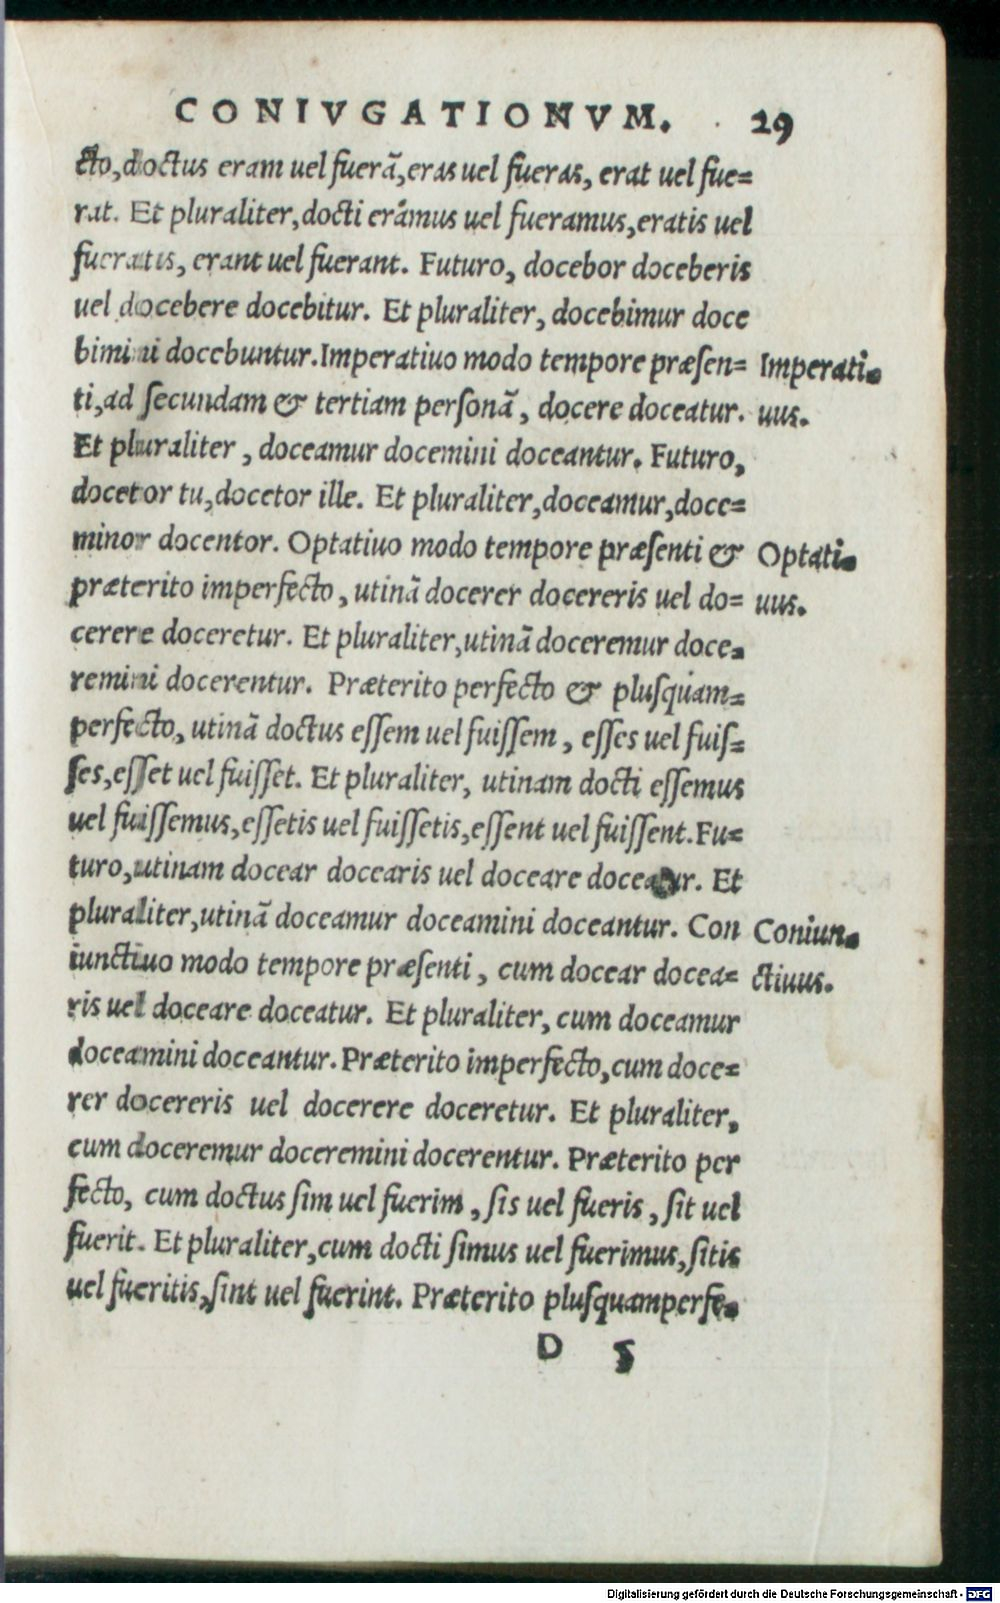 CONIVGATIONVM. 29
cto, doctus eram uel fuerā, eras uel fueras, erat uel fue=
rat. Et pluraliter, docti erāmus uel fueramus, eratis uel
fueratis, erant uel fuerant. Futuro, docebor doceberis
uel docebere docebitur. Et pluraliter, docebimur doce
bimini docebuntur. Imperatiuo modo tempore præsen= Imperati-
ti, ad secundam & tertiam personā, docere doceatur. uus.
Et pluraliter, doceamur docemini doceantur. Futuro,
docetor tu, docetor ille. Et pluraliter, doceamur, doce=
minor docentor. Optatiuo modo tempore præsenti & Optati-
præterito imperfecto, utinā docerer docereris uel do= uus.
cerere doceretur. Et pluraliter, utinā doceremur doce-
remini docerentur. Præterito perfecto & plusquam=
perfecto, utinā doctus essem uel fuissem, esses uel fuis=
ses, esset uel fuisset. Et pluraliter, utinam docti essemus
uel fuissemus, essetis uel fuissetis, essent uel fuissent. Fu=
turo, utinam docear docearis uel doceare doceatur. Et
pluraliter, utinā doceamur doceamini doceantur. Con Coniun-
iunctiuo modo tempore præsenti, cum docear docea= ctiuus.
ris uel doceare doceatur. Et pluraliter, cum doceamur
doceamini doceantur. Præterito imperfecto, cum doce=
rer docereris uel docerere doceretur. Et pluraliter,
cum doceremur doceremini docerentur. Præterito per
fecto, cum doctus sim uel fuerim, sis uel fueris, sit uel
fuerit. Et pluraliter, cum docti simus uel fuerimus, sitis
uel fueritis, sint uel fuerint. Præterito plusquamperfe-
D 5
Digitalisierung gefördert durch die Deutsche Forschungsgemeinschaft - DFG